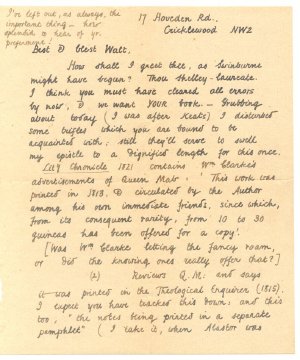 I've left out, as always, the
important thing — how
splendid to hear of yr.
preferment!
17 Hoveden Rd.,
Cricklewood NW2
Best & blest Walt,
How shall I greet thee, as Swinburne
might have begun? Thou Shelley-laureate.
I think you must have cleared all errors
by now, & we want YOUR book. — Grubbing
about today (I was after Keats) I disturbed
some trifles which you are bound to be
acquainted with: still they'll serve to swell
my epistle to a dignified length for this once.
Lit.y Chronicle 1821 contains Wm Clarke's
advertisements of Queen Mab. 'This work was
printed in 1813, & circulated by the Author
among his own immediate friends, since which,
from its consequent rarity, from 10 to 30
guineas has been offered for a copy'.
[Was Wm Clarke letting the fancy roam,
or did the knowing ones really offer that?]
(2) Reviews Q.M: and says
it was printed in the Theological Enquirer (1815).
I expect you have tracked this down: and this
too, "the notes being printed in a separate
pamphlet" (I take it, when Alastor was